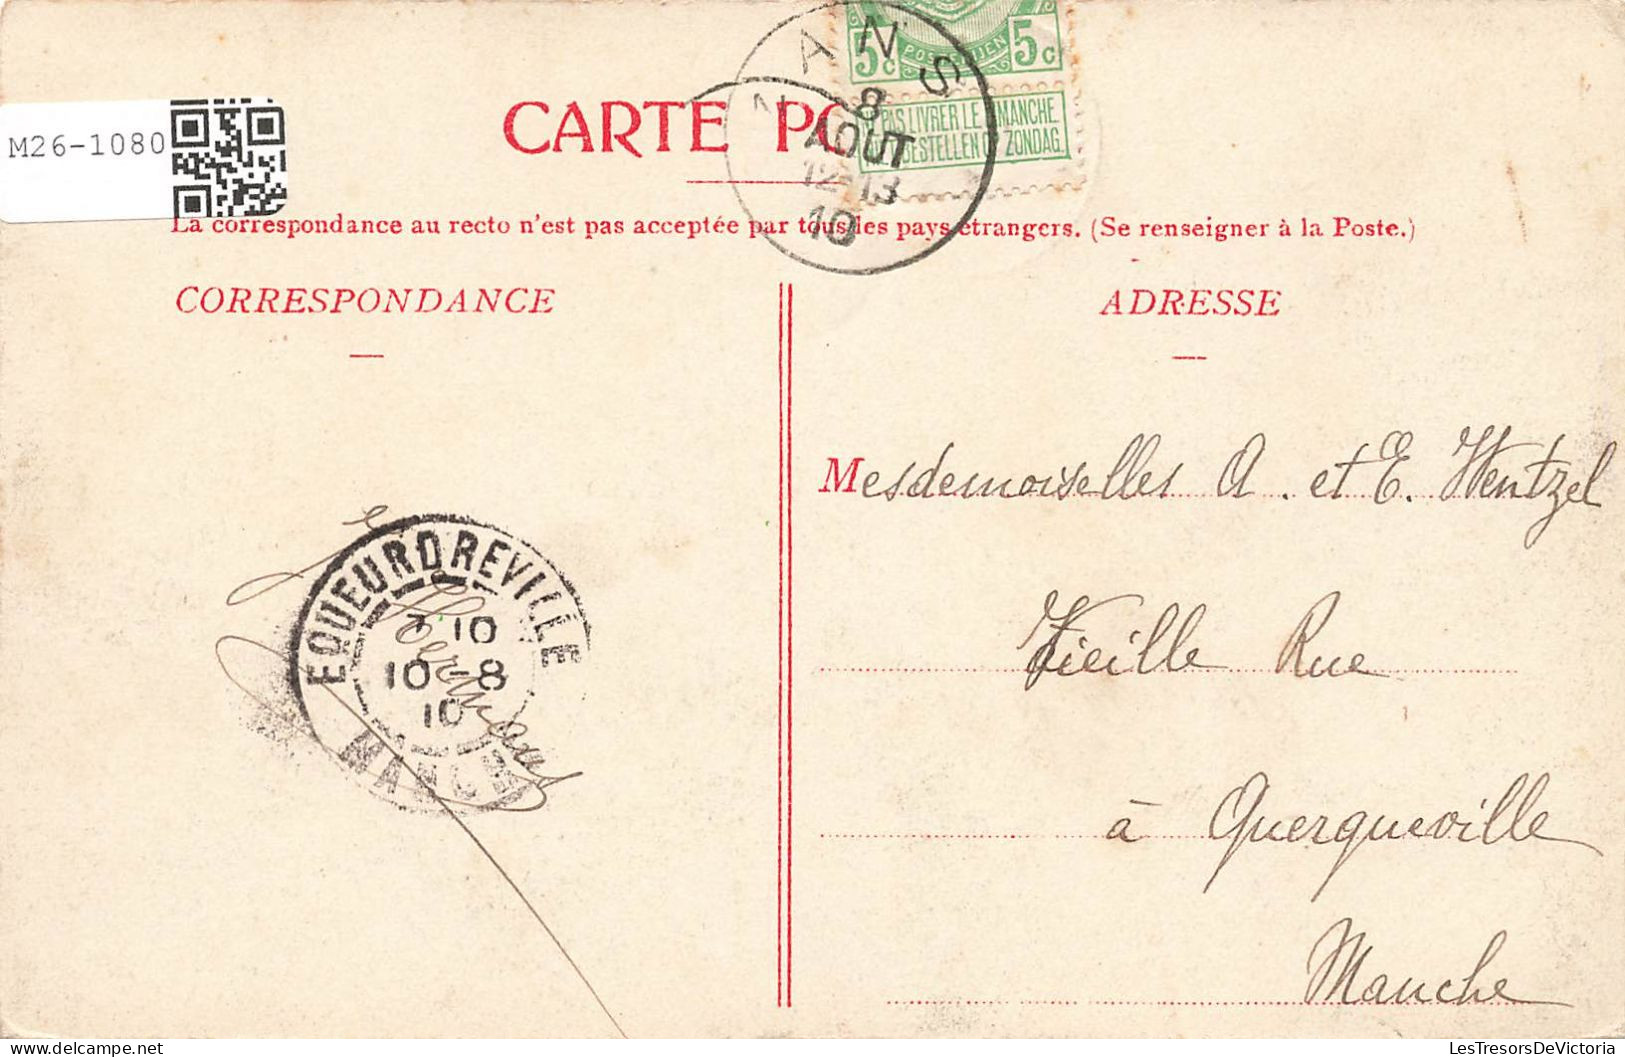 5c POSTERIJEN 5c
PAS LIVRER LE MANCHE
BESTELLEN ZONDAG
ANS
8
AOUT
12-13
10
M26-1080
CARTE PO
La correspondance au recto n'est pas acceptée par tous les pays étrangers. (Se renseigner à la Poste.)
CORRESPONDANCE
ADRESSE
Mesdemoiselles A. et E. Wentzel
Vieille Rue
à Querqueville
Manche
EQUEURDREVILLE
7 10
10-8
10
MANCHE
LesTresorsDeVictoria